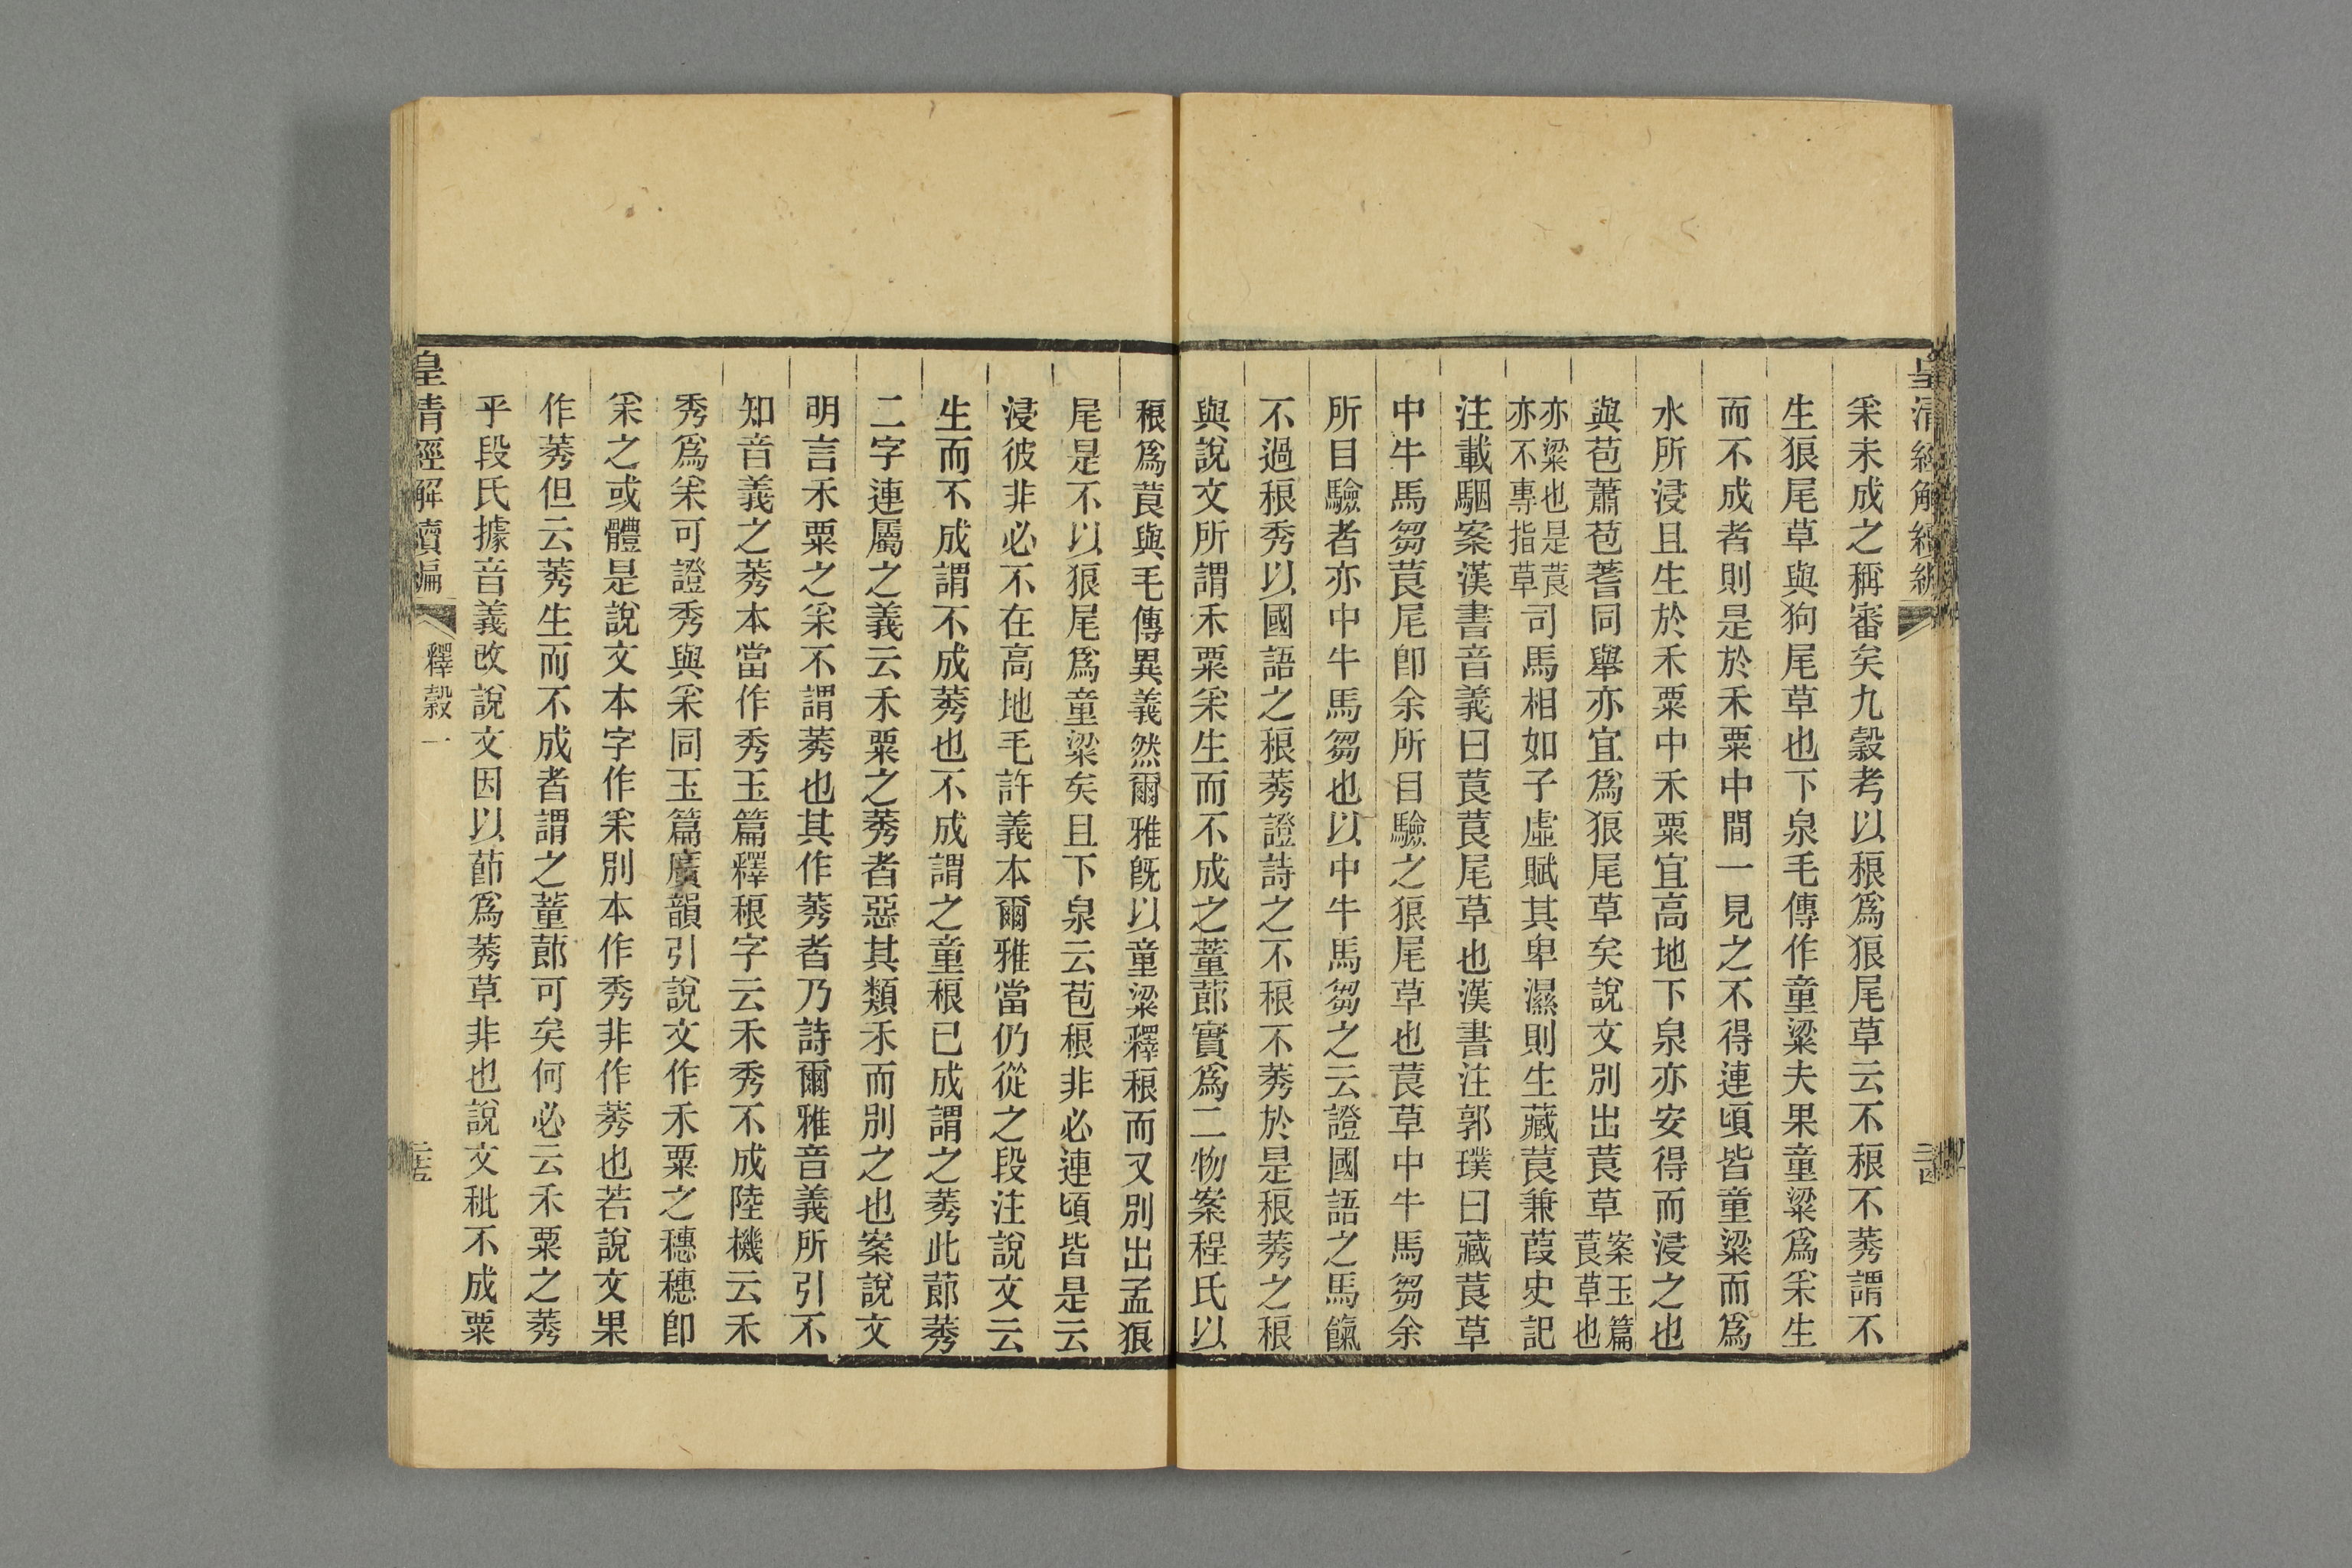 皇清經解續編
采未成之稱審矣九穀考以稂爲狼尾草云不稂不莠謂不
生狼尾草與狗尾草也下泉毛傳作童粱夫果童粱爲采生
而不成者則是於禾粟中間一見之不得連頃皆童粱而爲
水所浸且生於禾粟中禾粟宜高地下泉亦安得而浸之也
與苞蕭苞蓍同舉亦宜爲狼尾草矣說文別出莨草案玉篇莨草也
亦粱也是莨亦不專指草司馬相如子虛賦其卑濕則生藏莨兼葭史記
注載駰案漢書音義曰莨莨尾草也漢書注郭璞曰藏莨草
中牛馬芻莨尾卽余所目驗之狼尾草也莨草中牛馬芻余
所目驗者亦中牛馬芻也以中牛馬芻之云證國語之馬餼
不過稂秀以國語之稂莠證詩之不稂不莠於是稂莠之稂
與說文所謂禾粟采生而不成之蕫蓈實爲二物案程氏以
稂爲莨與毛傳異義然爾雅旣以童粱釋稂而又別出孟狼
尾是不以狼尾爲童粱矣且下泉云苞稂非必連頃皆是云
浸彼非必不在高地毛許義本爾雅當仍從之段注說文云
生而不成謂不成莠也不成謂之童稂已成謂之莠此蓈莠
二字連屬之義云禾粟之莠者惡其類禾而別之也案說文
明言禾粟之采不謂莠也其作莠者乃詩爾雅音義所引不
知音義之莠本當作秀玉篇釋稂字云禾秀不成陸機云禾
秀爲采可證秀與采同玉篇廣韻引說文作禾粟之穗穗卽
采之或體是說文本字作采別本作秀非作莠也若說文果
作莠但云莠生而不成者謂之蕫蓈可矣何必云禾粟之莠
乎段氏據音義改說文因以蓈爲莠草非也說文秕不成粟
皇清經解續編
釋穀一